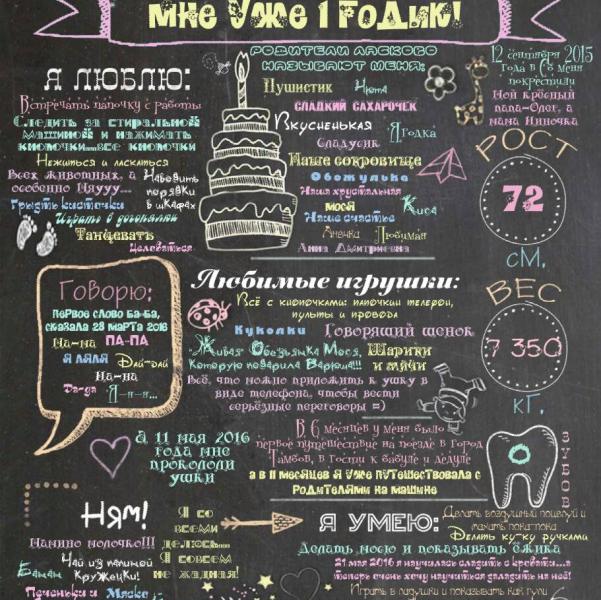 мне уже 1 годик!
Я ЛЮБЛЮ:
Встречать папочку с работы
Следить за стиральной
машиной и нажимать
кнопочки...все кнопочки
Нежиться и ласкаться
Всех животных, а
особенно Няууу...
Наводить
порядки
в шкафах
Грызть кисточки
Играть в догонялки
Танцевать
Целоваться
РОДИТЕЛИ ЛАСКОВО
НАЗЫВАЮТ МЕНЯ:
Пушистик
Нюта
СЛАДКИЙ САХАРОЧЕК
Вкусненькая
Ягодка
Сладусик
Наше сокровище
Обожулька
Наша хрустальная
мося
Киса
Наше счастье
Анечка
Любимая
Анна Дмитриевна
12 сентября 2015
года в Сб меня
покрестили
Мой крёсный
папа-Олег, а
мама Ниночка
РОСТ
72
см.
Говорю:
первое слово ба-ба,
сказала 28 марта 2016
Ма-ма
ПА-ПА
Я ЛЯЛЯ
Дай-дай
На-на
Да-да
Я-я-я...
Любимые игрушки:
Всё с кнопочками: папочкин телефон,
пульты и провода
Куколки
Говорящий щенок
"Живая Обезьянка Мося,
Которую подарила Варюша!!!
Шарики
и мячи
Всё, что можно приложить к ушку в
виде телефона, чтобы вести
серьёзные переговоры =)
ВЕС
7 350
кг.
а 11 мая 2016
года мне
прокололи
ушки
В 6 месяцев у меня было
первое путешествие на поезде в город
Тамбов, в гости к бабуле и дедуле
а в 11 месяцев я уже путешествовала с
родителями на машине
0
ЗУБОВ
Ням!
Мамино молочко!!!
Чай из папиной
Кружечки!
Банан
Печеньки и
Мяско
Я со
всеми
делюсь...
Я совсем
не жадная!
Я УМЕЮ:
Делать воздушный поцелуй и
махать пока-пока
Делать ку-ку ручками
Делать носю и показывать ёжика
21 мая 2016 я научилась слазить с кровати...а
теперь очень хочу научиться залазить на неё!
Играть в ладушки и показывать как гули